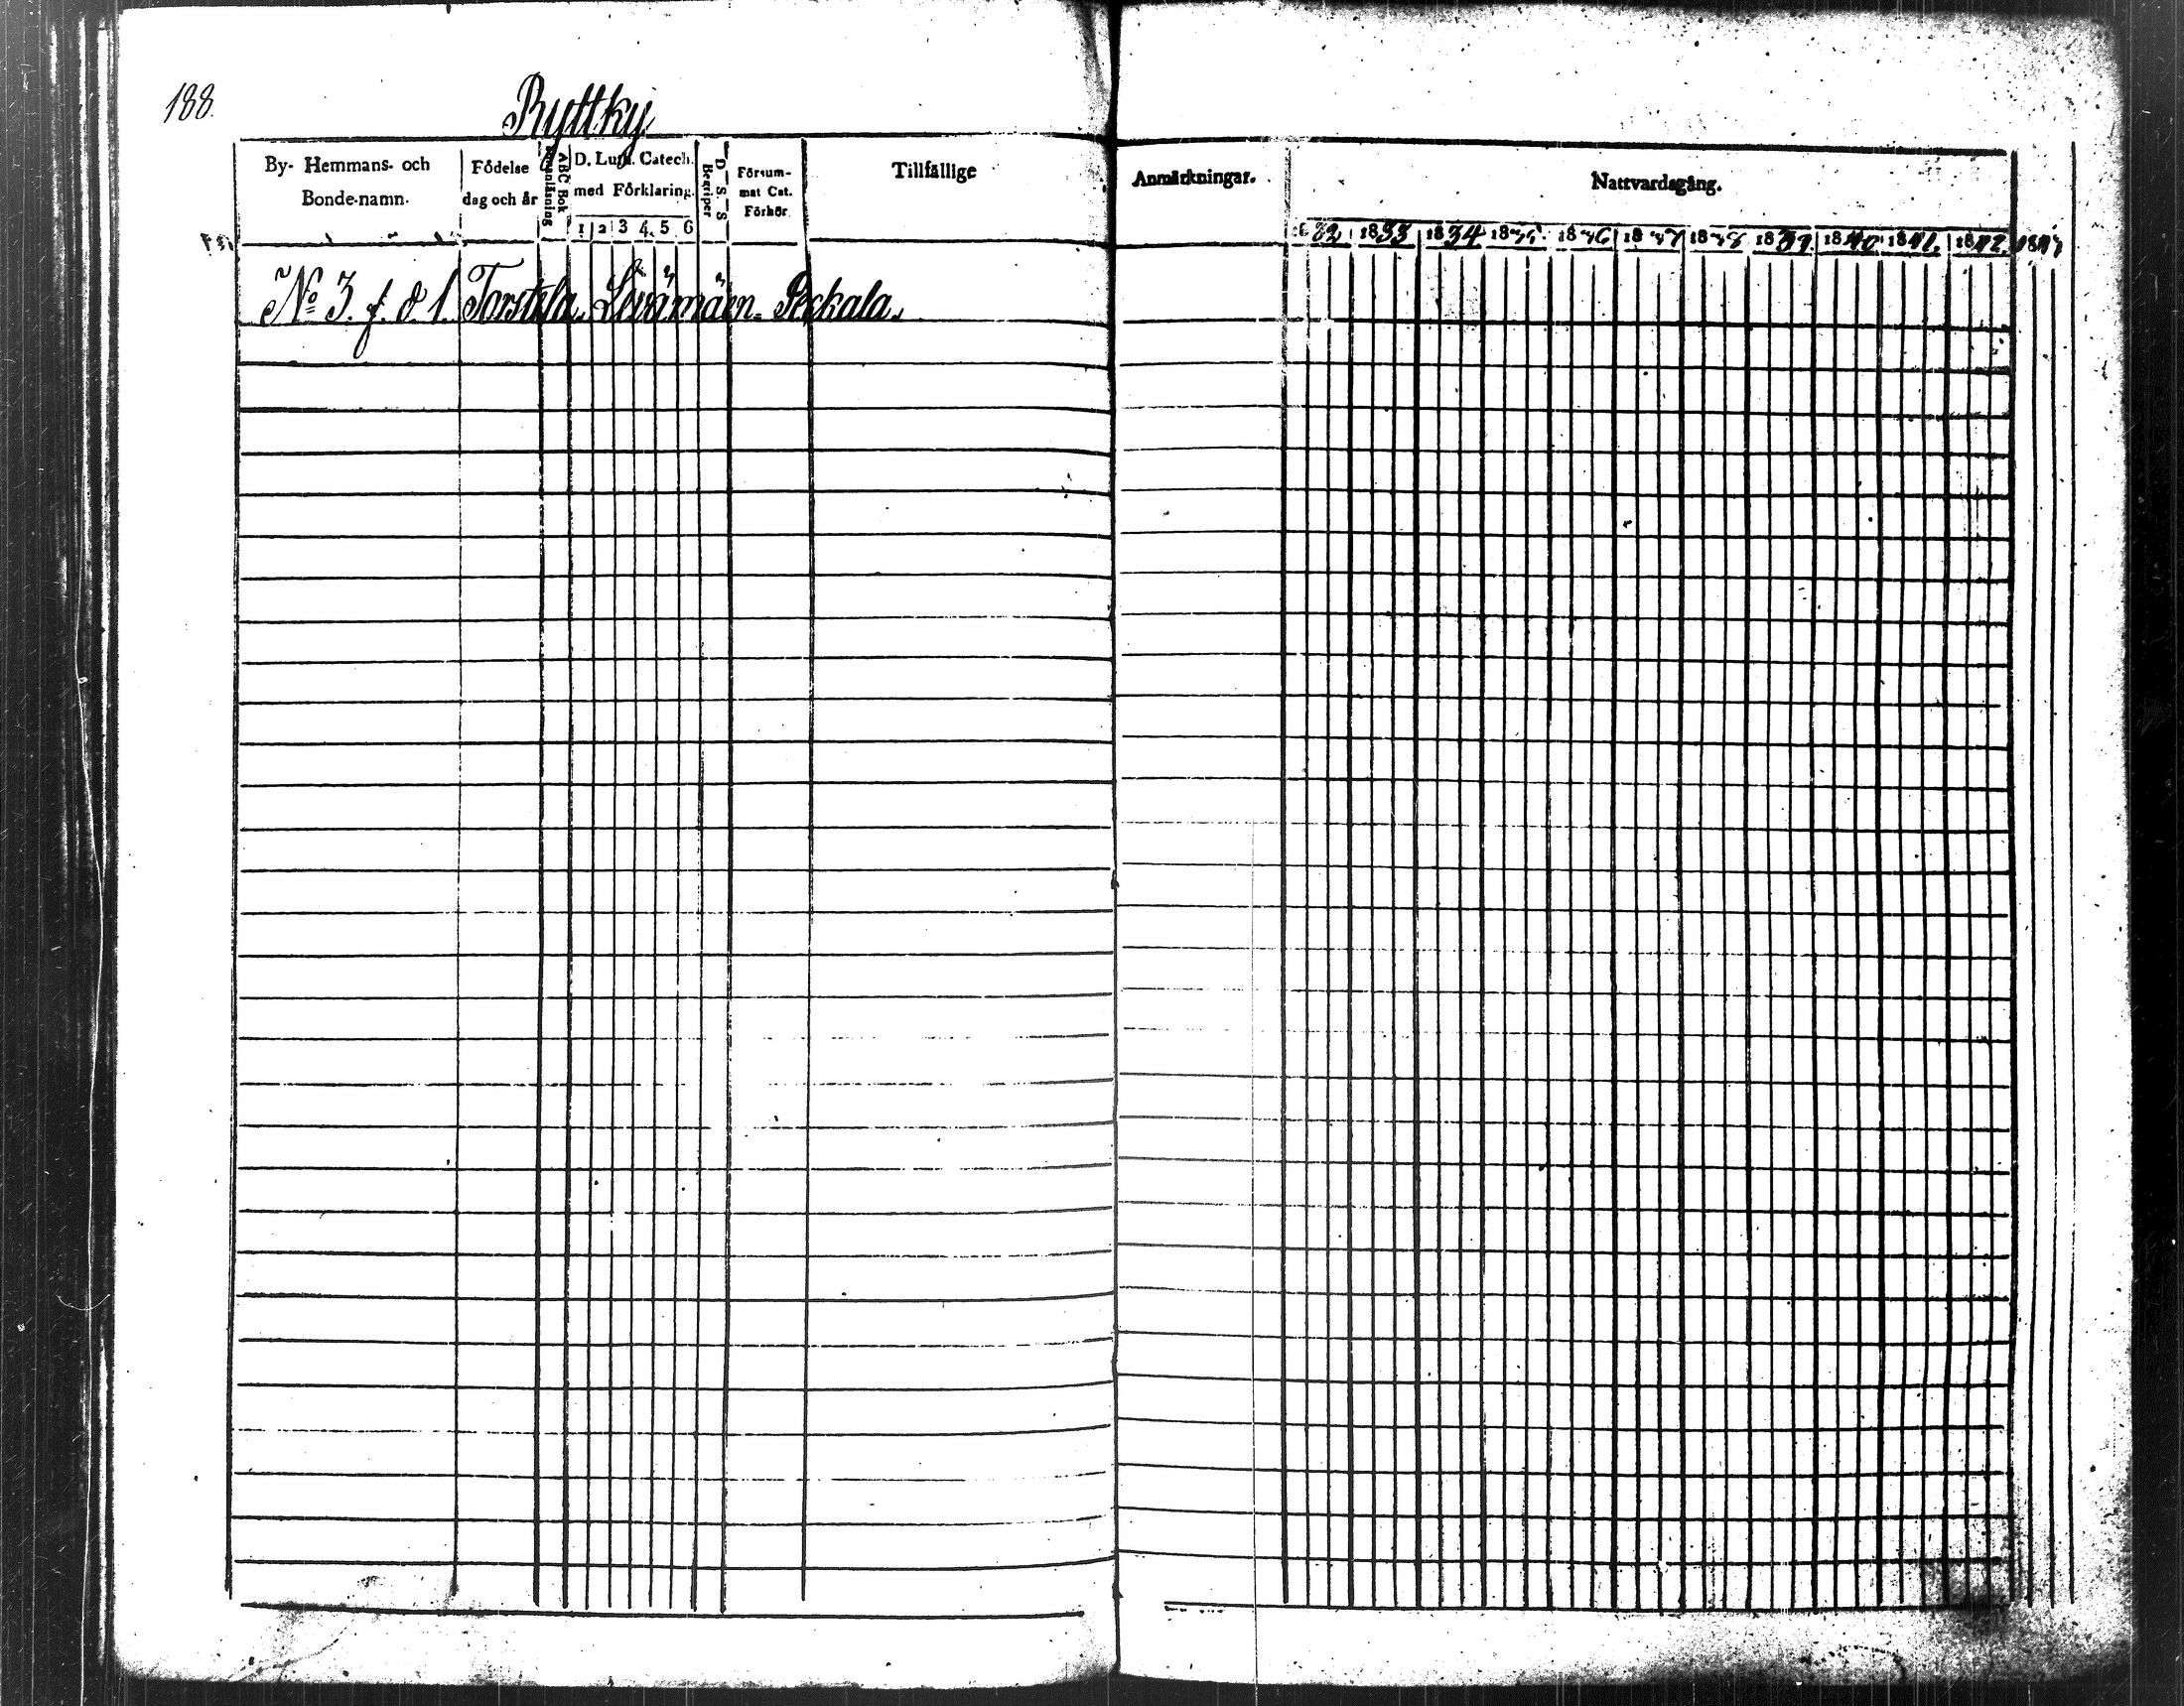 188.
Ryttky
By- Hemmans- och Bonde-namn.
Födelse dag och år
Innanläsning
ABC Bok
D. Luth. Catech. med Förklaring.
1 2 3 4 5 6
Begriper
D. S. S
Försum- mat Cat. Förhör
Tillfällige
Anmärkningar.
Nattvardsgång.
1832 1833 1834 1835. 1836 1837 1838 1839 1840 1841. 1842. 1843
No 3. f. d. 1. Torstila. Levämäen. Peckala.